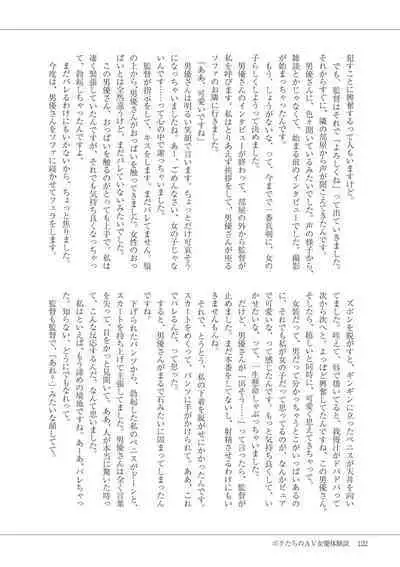 犯すことに興奮するって人もいますけど。
でも、監督はそれで「よろしくね」って出ていきました。
それからすぐに、隣の部屋から声が聞こえてきたんです。
男優さんに、色々聞いているみたいでした。声の様子から、
雑談とかじゃなくて、始まる前のインタビューでした。撮影
が始まっちゃったんです。
もう、しょうがないな、って、今までで一番真剣に、女の
子らしくしようって決めました。
男優さんのインタビューが終わって、部屋の外から監督が
私を呼びます。私はとりあえず挨拶をして、男優さんが座る
ソファのお隣に行きました。
「ああ、可愛いですね」
男優さんは明るい笑顔で言います。ちょっとだけ可哀そう
になっちゃいましたね。あー、ごめんなさい、女の子じゃな
いんです……って心の中で謝っちゃいました。
監督が指示をして、キスをします。まだバレてません。服
の上から、男優さんがおっぱいを触ってきました。女性のおっ
ぱいとは全然違うけど、まだバレていないみたいでした。
この男優さん、おっぱいを触るのがとっても上手で、私は
凄く緊張していたんですが、それでも気持ち良くなっちゃっ
て、勃起しちゃったんですよ。
まだバレるわけにもいかないから、ちょっと焦りました。
今度は、男優さんをソファに寝かせてフェラをします。
ズボンを脱がすと、ギンギンになったペニスが天井を向い
てました。咥えて、唇で扱いてると、我慢汁がドバドバって
次から次へと。よっぽど興奮してたんですかね、この男優さん。
そしたら、嬉しいと同時に、可愛く思えてきちゃって。
女装だって、男だって分かっちゃうとこがいっぱいあるの
に、それでも私が女の子だって思ってるのが、なんかピュア
で可愛いな、って感じたんです。もっと気持ち良くして、い
かせたいな、って、一生懸命しゃぶっちゃいました。
だけど、男優さんが「出そう……」って言ったら、監督が
止めました。まだ本番をしないし、射精させるわけにもい
きませんもんね。
それで、とうとう、私の下着を脱がせにかかったんです。
スカートをめくって、パンツに手がかけられて。ああ、これ
でバレるんだ、って思った。
すると、男優さんがまるで石みたいに固まってしまったん
ですね。
下げられたパンツから、勃起した私のペニスがビーンと、
スカートを持ち上げて主張してました。男優さんは全く言葉
を失って、目をかっと見開いて。ああ、人が本当に驚いた時っ
て、こんな反応するんだ、なんて思いました。
私はといえば、もう諦めの境地ですね。あーあ、バレちゃっ
た。知らない、どうにでもなれって。
監督も監督で、「あれぇ!」みたいな顔してて。
ボクたちのAV女優体験談 122